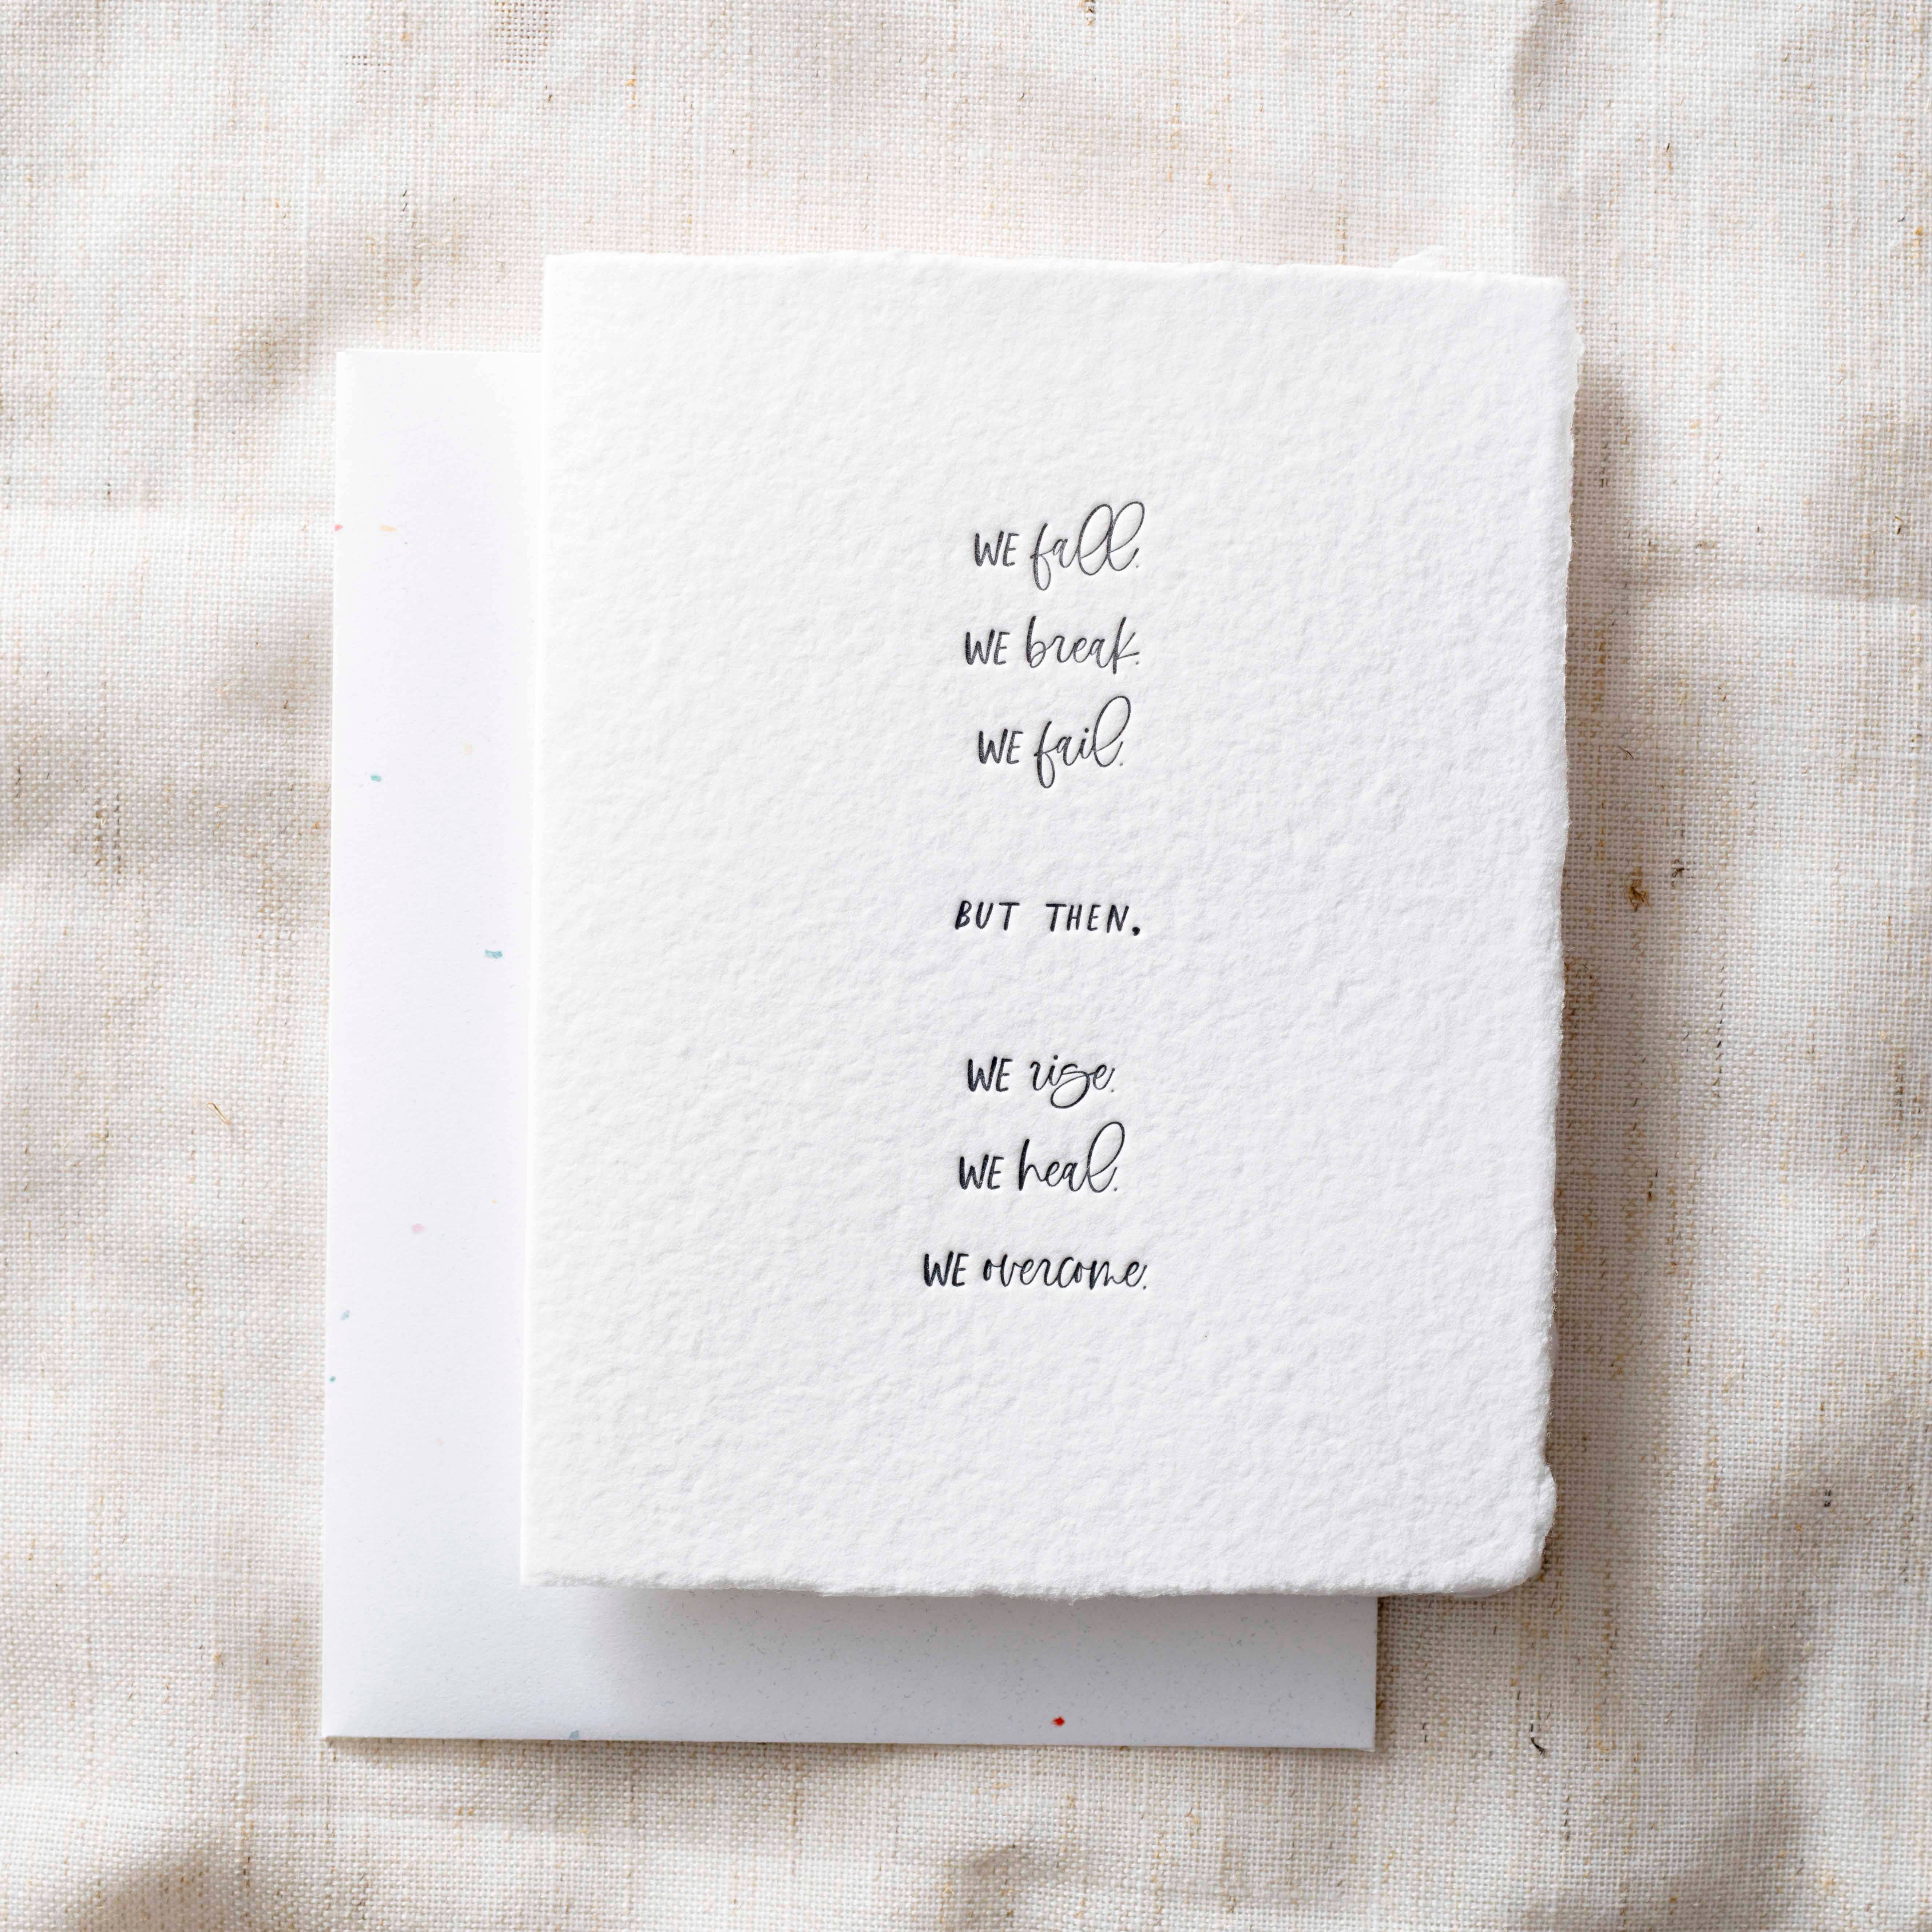 WE fall.
WE break.
WE fail.
BUT THEN,
WE rise.
WE heal.
WE overcome.